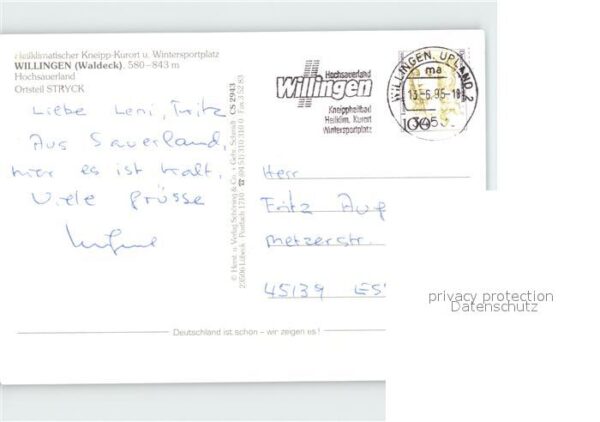 Heilklimatischer Kneipp-Kurort u. Wintersportplatz
WILLINGEN (Waldeck). 580–843 m
Hochsauerland
Ortsteil STRYCK
Liebe Leni, Fritz
Aus Sauerland,
hier es ist kalt.
Viele grüsse
© Herst. u. Verlag Schöning & Co. + Gebr. Schmidt CS 2943
23506 Lübeck Postfach 1710 ☎ (04 51) 310 310 Fax 3 52 83
Hochsauerland
Willingen
Kneippheilbad
Heilklim. Kurort
Wintersportplatz
WILLINGEN, UPLAND 2
ma
100
Herr
Fritz
Metzerstr.
45139 ES
Deutschland ist schön – wir zeigen es!
privacy protection
Datenschutz